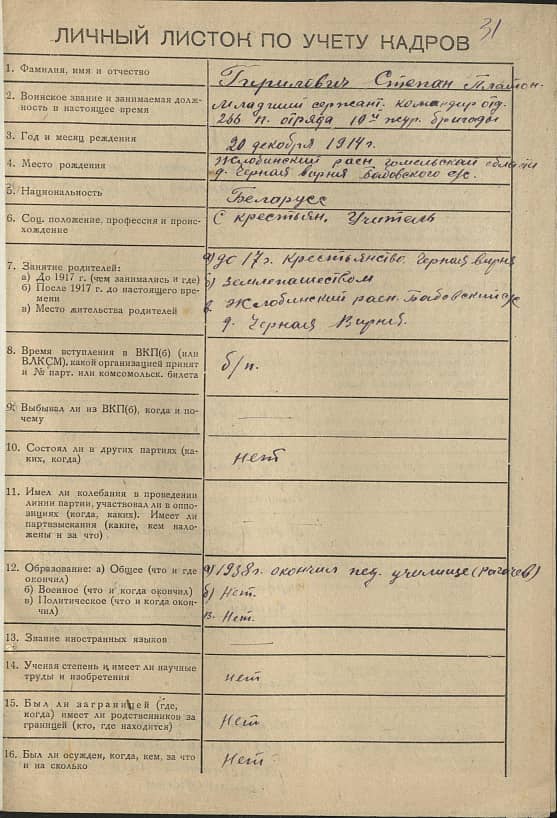 31
ЛИЧНЫЙ ЛИСТОК ПО УЧЕТУ КАДРОВ
1. Фамилия, имя и отчество
Гирилович Степан Платон.
2. Воинское звание и занимаемая долж-
ность в настоящее время
Младший сержант. командир отд.
266 п. отряда 10й жур. бригады
3. Год и месяц рождения
20 декабря 1914 г.
4. Место рождения
Жлобинский район гомельской области
д. Черная вирня бабовского с/с.
5. Национальность
Беларусс
6. Соц. положение, профессия и проис-
хождение
С крестьян. Учитель
7. Занятие родителей:
а) До 1917 г. (чем занимались и где)
б) После 1917 г. до настоящего вре-
мени
в) Место жительства родителей
а) до 17 г. крестьянство. Черная вирня
б) Землепашеством
в. Жлобинский расн. Бабовский с/с
д. Черная Вирня.
8. Время вступления в ВКП(б) (или
ВЛКСМ), какой организацией принят
и № парт. или комсомольск. билета
б/п.
9. Выбывал ли из ВКП(б), когда и по-
чему
10. Состоял ли в других партиях (ка-
ких, когда)
нет
11. Имел ли колебания в проведении
линии партии, участвовал ли в оппо-
зициях (когда, каких). Имеет ли
партвзыскания (какие, кем наложе-
ны и за что)
12. Образование: а) Общее (что и где
окончил)
б) Военное (что и когда окончил)
в) Политическое (что и когда окон-
чил)
а) 1938 г. окончил пед. училище (Рогачев)
б) Нет.
в. Нет.
13. Звание иностранных языков
14. Ученая степень и имеет ли научные
труды и изобретения
нет
15. Был ли заграницей (где,
когда) имеет ли родственников за
границей (кто, где находится)
Нет
16. Был ли осужден, когда, кем, за что
и на сколько
Нет